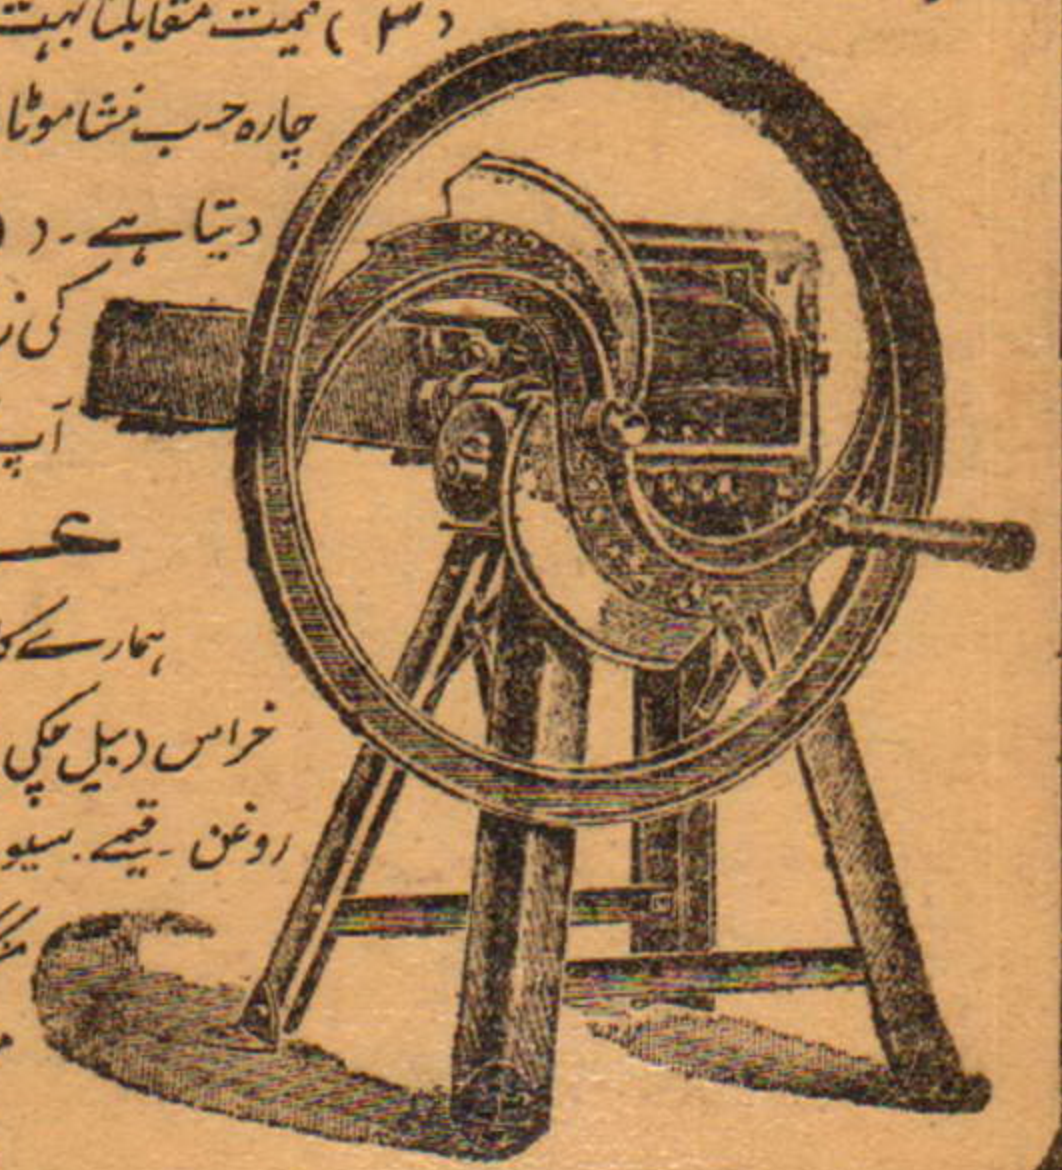 (۳) قیمت مقابلتاً بہت
چارہ حسب منشا موٹا
دیتا ہے ۔ (
کی
آپ
ہمارے
خراس (بیل چکی
روغن ۔ قیمے ۔ سیو